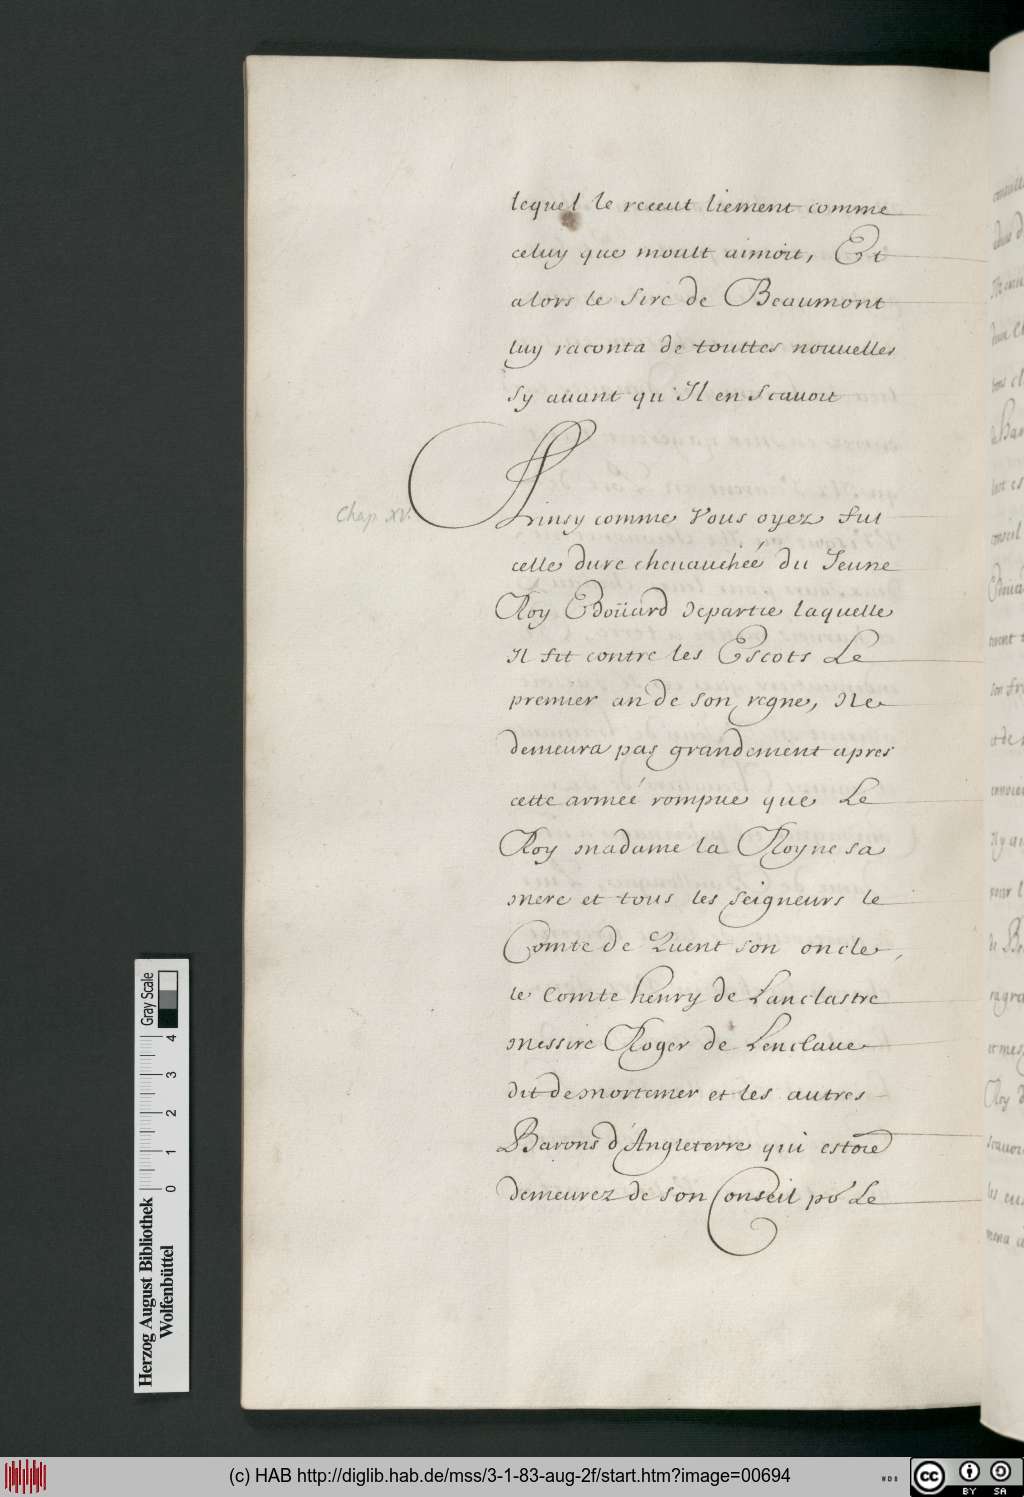 lequel le receut liement comme
celuy que moult aimoit, Et
alors le sire de Beaumont
luy raconta de touttes nouuelles
sy auant qu'Il en scauoit
Chap. XV.
Ainsy comme Vous oyez fut
celle dure cheuauchéé du Jeune
Roy Edoüard departie laquelle
Il fit contre les Escots Le
premier an de son regne, Ne
demeura pas grandement apres
cette arméé rompue que Le
Roy madame la Royne sa
mere et tous les seigneurs le
Comte de Quent son oncle,
le Comte henry de Lanclastre
messire Roger de Lenclaue
dit de mortemer et les autres
Barons d'Angleterre qui estoie
demeurez de son Conseil po Le
Gray Scale
4
3
2
1
0
Herzog August Bibliothek
Wolfenbüttel
(c) HAB http://diglib.hab.de/mss/3-1-83-aug-2f/start.htm?image=00694
WDB
cc
BY
SA